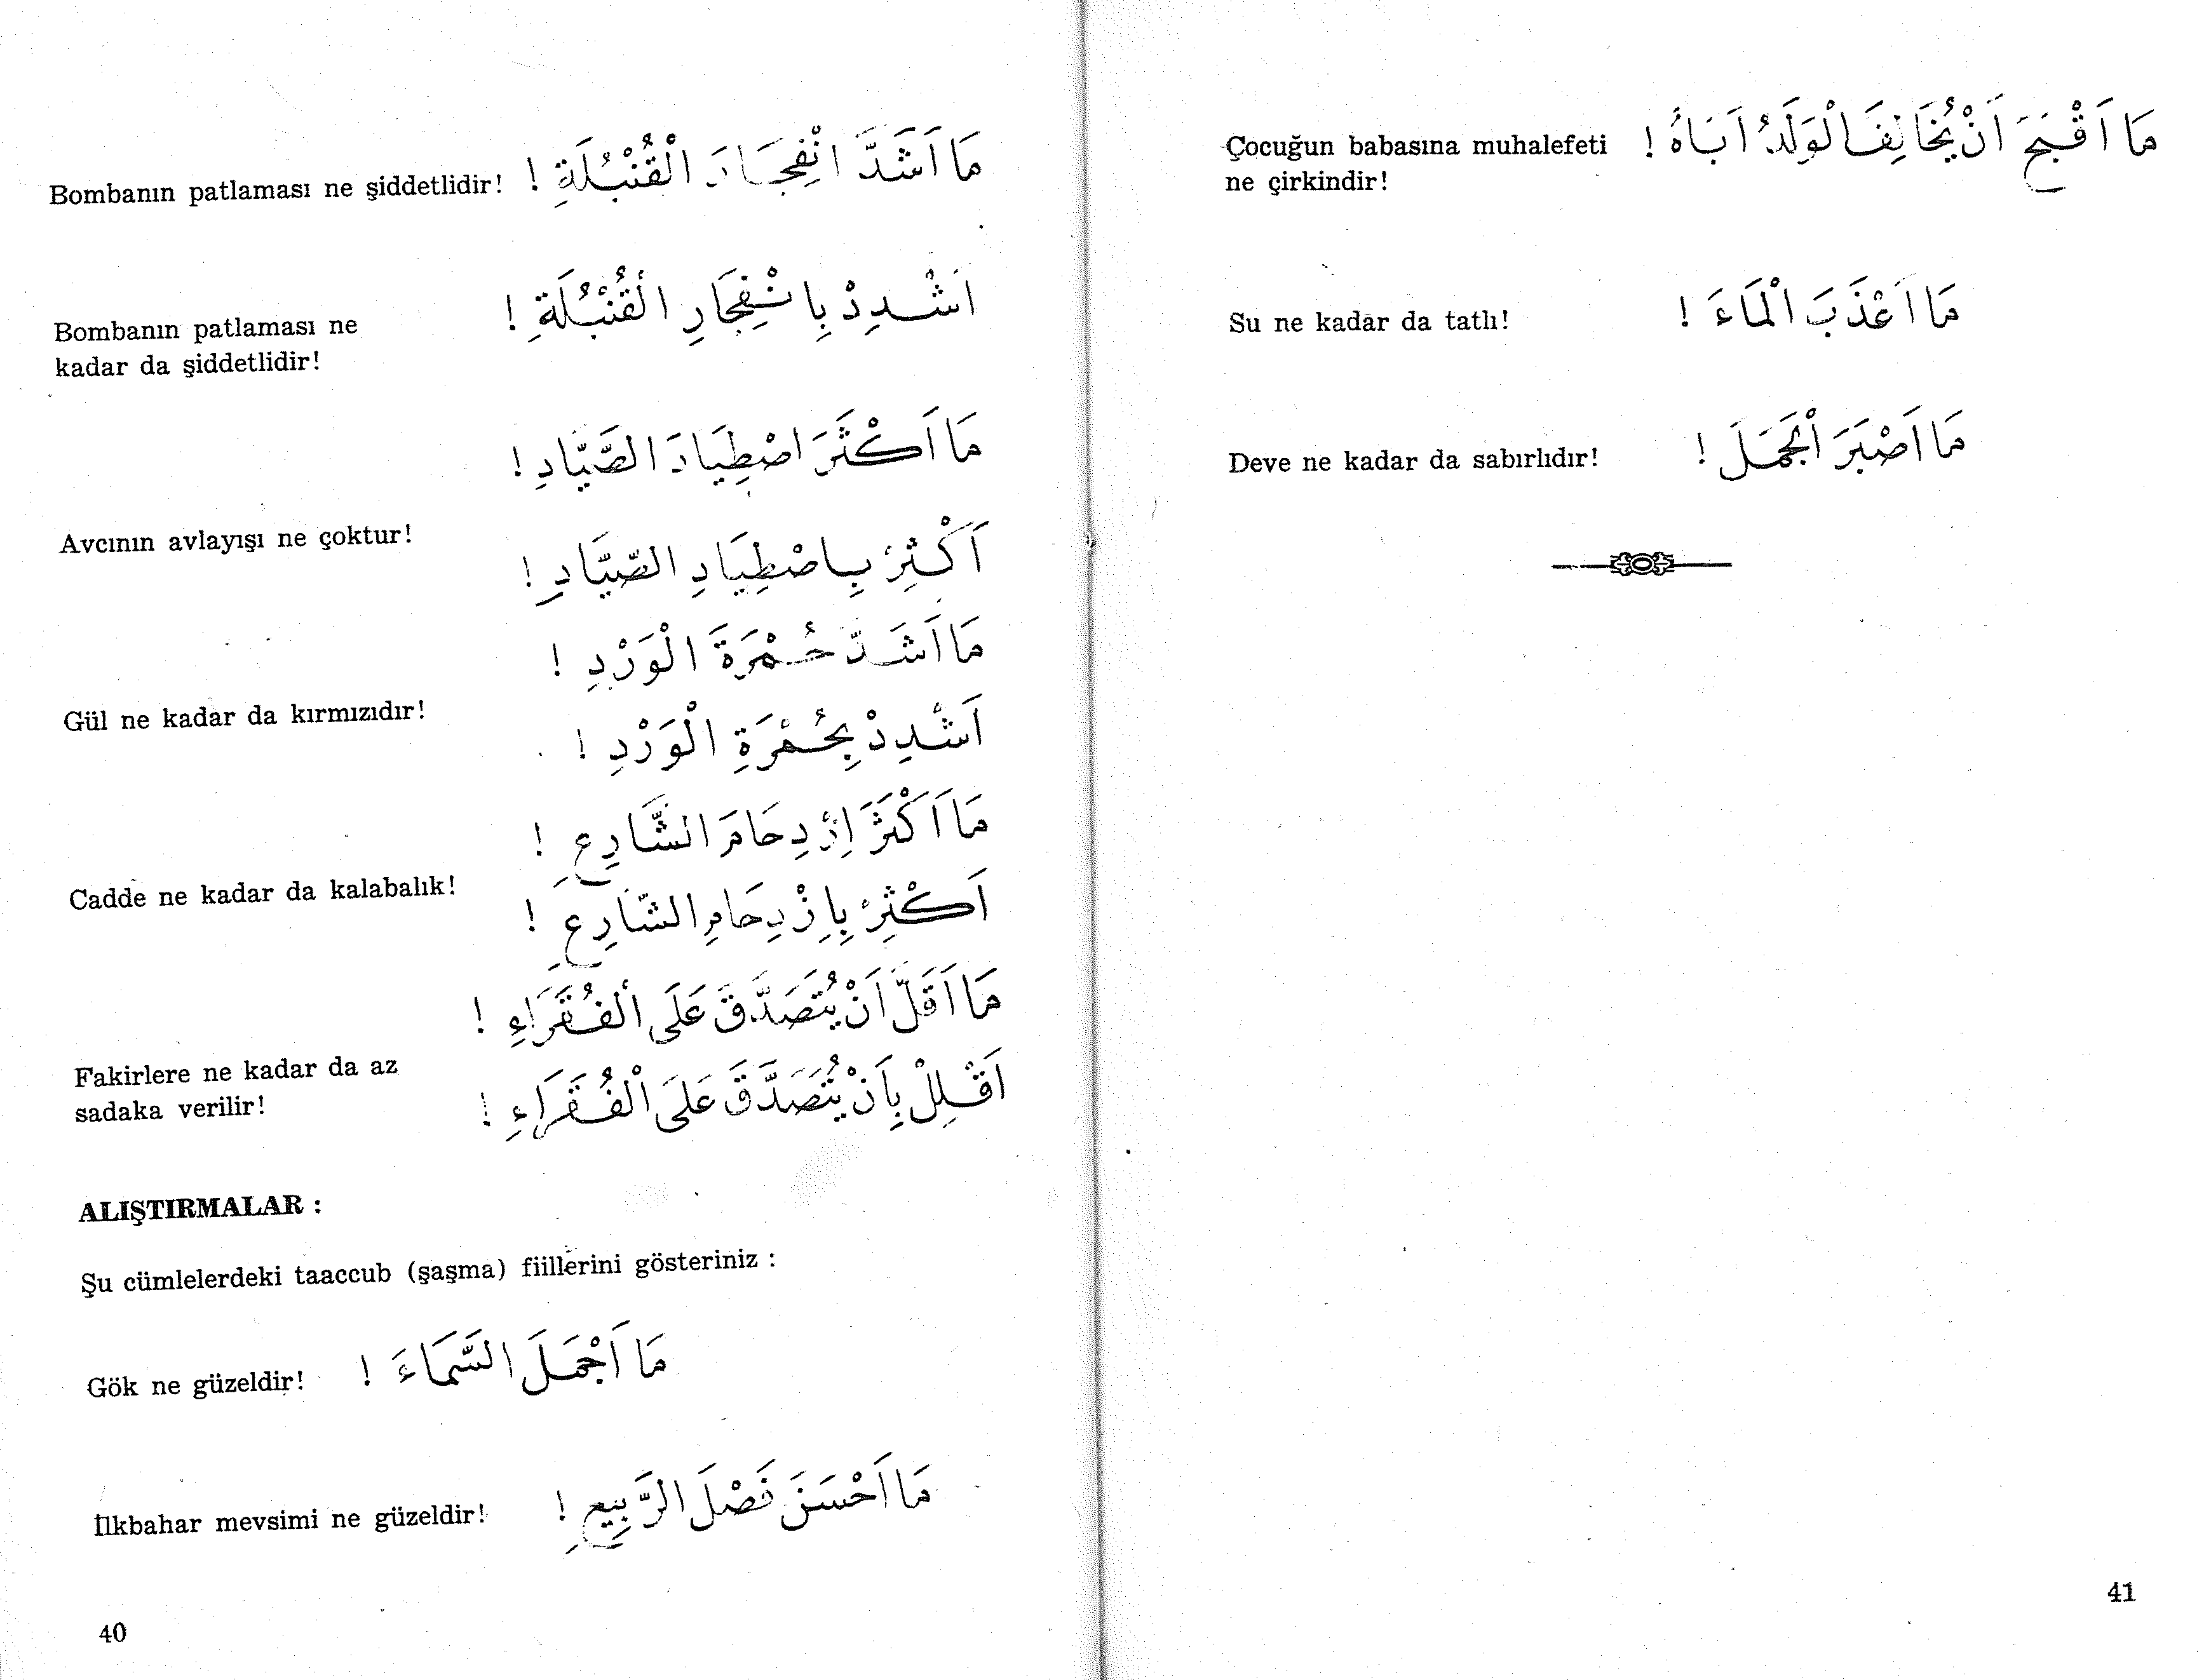 Bombanın patlaması ne şiddetlidir! مَا اَشَدَّ انْفِجَارَ الْقُنْبُلَةِ !
اَشْدِدْ بِانْفِجَارِ الْقُنْبُلَةِ !
Bombanın patlaması ne
kadar da şiddetlidir!
مَا اَكْثَرَ اصْطِيَادَ الصَّيَّادِ !
Avcının avlayışı ne çoktur!
اَكْثِرْ بِاصْطِيَادِ الصَّيَّادِ !
مَا اَشَدَّ حُمْرَةَ الْوَرْدِ !
Gül ne kadar da kırmızıdır!
اَشْدِدْ بِحُمْرَةِ الْوَرْدِ !
مَا اَكْثَرَ اِزْدِحَامَ الشَّارِعِ !
Cadde ne kadar da kalabalık!
اَكْثِرْ بِاِزْدِحَامِ الشَّارِعِ !
مَا اَقَلَّ اَنْ يُتَصَدَّقَ عَلَى الْفُقَرَاءِ !
Fakirlere ne kadar da az
sadaka verilir!
اَقْلِلْ بِاَنْ يُتَصَدَّقَ عَلَى الْفُقَرَاءِ !
ALIŞTIRMALAR :
Şu cümlelerdeki taaccub (şaşma) fiillerini gösteriniz :
Gök ne güzeldir! مَا اَجْمَلَ السَّمَاءَ !
İlkbahar mevsimi ne güzeldir! مَا اَحْسَنَ فَصْلَ الرَّبِيعِ !
40
Çocuğun babasına muhalefeti مَا اَقْبَحَ اَنْ يُخَالِفَ الْوَلَدُ اَبَاهُ !
ne çirkindir!
Su ne kadar da tatlı! مَا اَعْذَبَ الْمَاءَ !
Deve ne kadar da sabırlıdır! مَا اَصْبَرَ الْجَمَلَ !
41